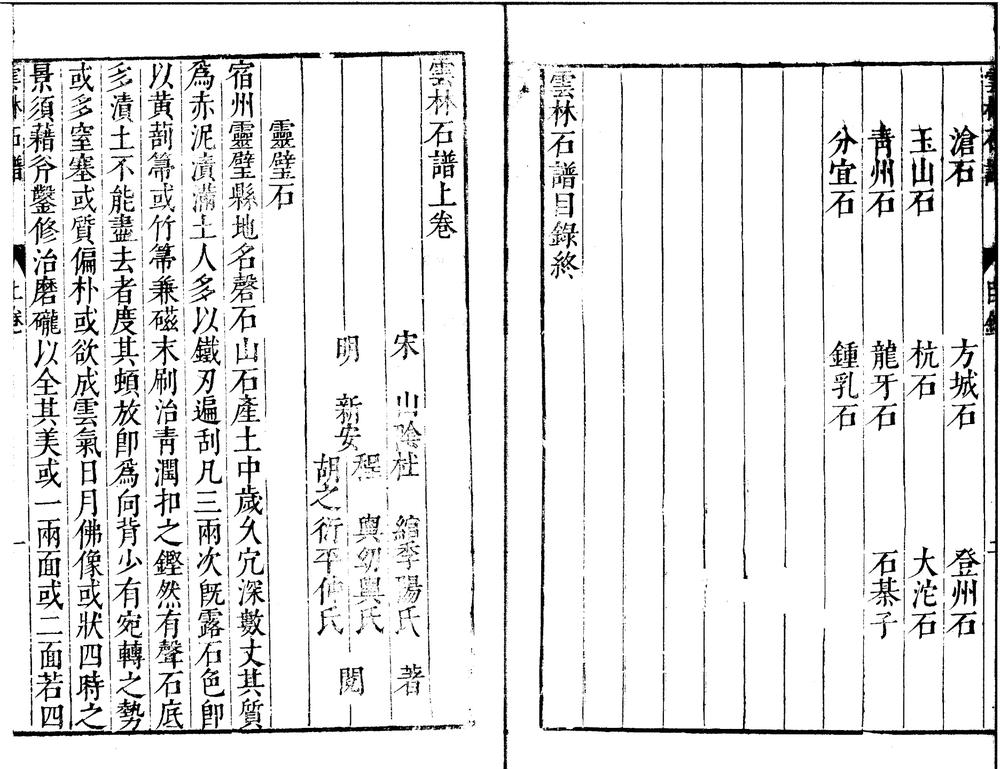 滄石 方城石 登州石
玉山石 杭石 大沱石
青州石 龍牙石 石棊子
分宜石 鍾乳石
雲林石譜目錄終
雲林石譜上卷
宋 山陰杜 綰季陽氏 著
明 新安 程 輿幼輿氏 閱
胡之衍平仲氏
靈璧石
宿州靈璧縣地名磬石山石產土中歲久穴深數丈其質
為赤泥漬滿土人多以鐵刃遍刮凡三兩次既露石色卽
以黃蓓箒或竹箒兼磁末刷治青潤扣之鏗然有聲石底
多漬土不能盡去者度其頓放卽為向背少有宛轉之勢
或多窒塞或質偏朴或欲成雲氣日月佛像或狀四時之
景須藉斧鑿修治磨礲以全其美或一兩面或二面若四
雲林石譜 上卷 一